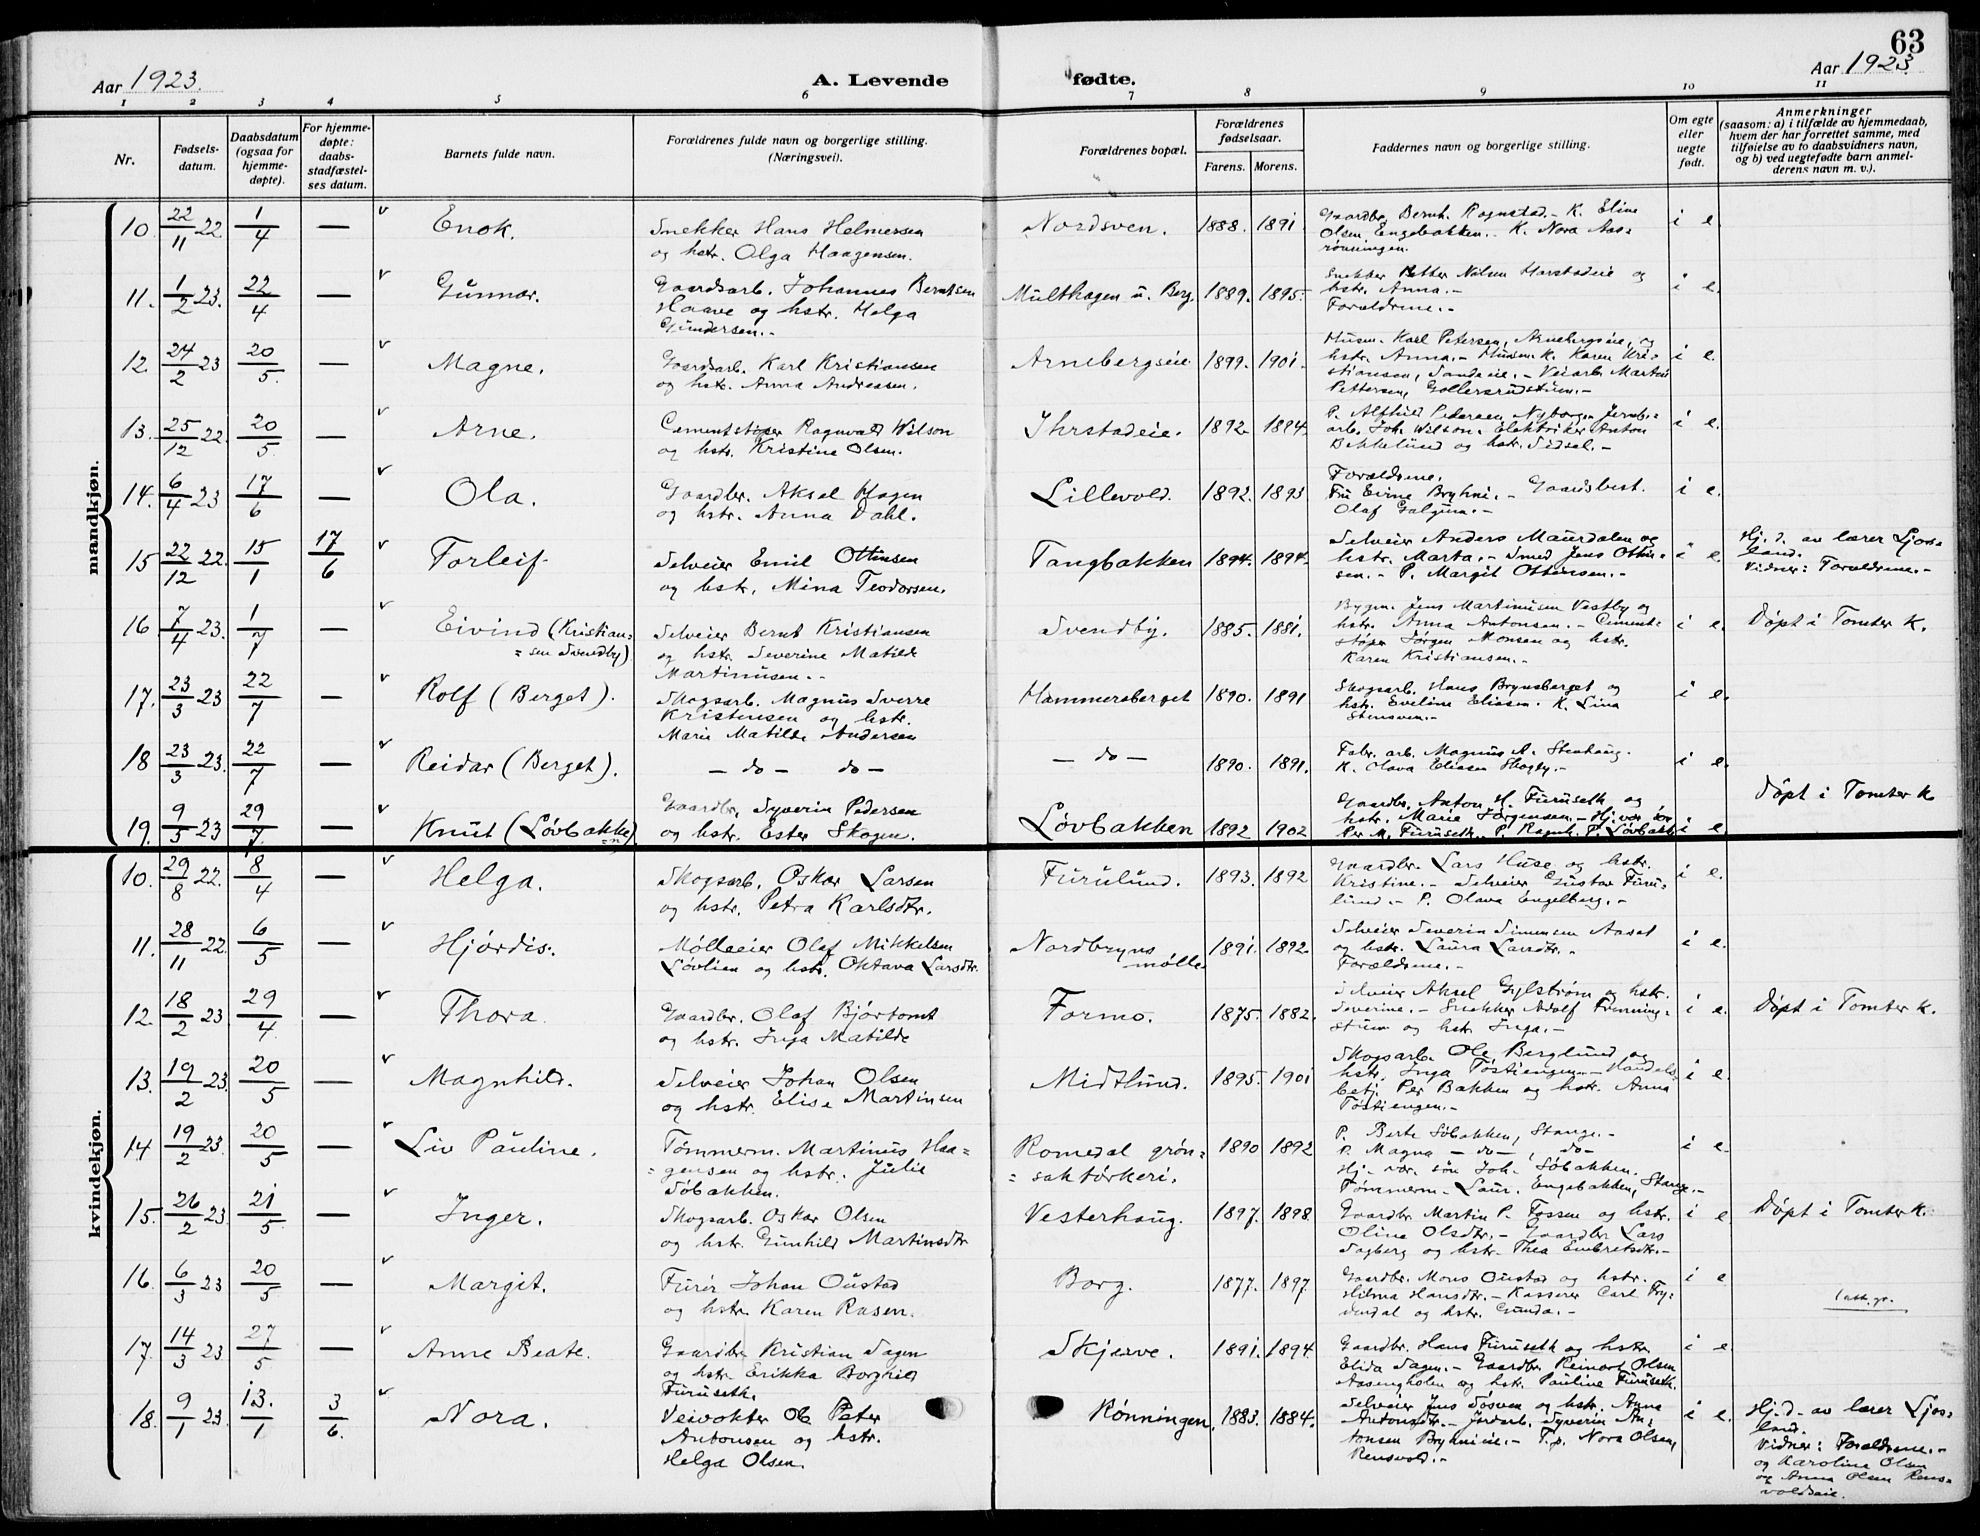 63
Aar 1923.
A. Levende fødte.
Aar 1923.
1 2 3 4 5 6 7 8 9 10 11
Nr.
Fødsels-
datum.
Daabsdatum
(ogsaa for
hjemme-
døpte).
For hjemme-
døpte:
daabs-
stadfæstel-
ses datum.
Barnets fulde navn.
Forældrenes fulde navn og borgerlige stilling.
(Næringsvei).
Forældrenes bopæl.
Forældrenes
fødselsaar.
Farens. Morens.
Faddernes navn og borgerlige stilling.
Om egte
eller
uegte
født.
Anmerkninger
(saasom: a) i tilfælde av hjemmedaab,
hvem der har forrettet samme, med
tilføielse av to daabsvidners navn,
og b) ved uegtefødte barn anmel-
derens navn m. v.).
mandkjøn.
10. 22/11 22. 1/4 — Enok.
Snekker Hans Helmersen
og hstr. Olga Haagensen.
Nordsven. 1888. 1891.
Gaardbr. Bernh. Rognstad. - K. Eline
Olsen Engebakken. - K. Nora Aas=
rønningen.
i e.
11. 1/2 23. 22/4 — Gunnar.
Gaardsarb. Johannes Berntsen
Haave og hstr. Helga
Gundersen. -
Multhagen u. Berg. 1889. 1895.
Snekker Petter Nilsen Harstadeie og
hstr. Anna. -
Forældrene. -
i e.
12. 24/2 23 20/5. — Magne.
Gaardsarb. Karl Kristiansen
og hstr. Anna Andreasen.
Arnebergseie 1899. 1901.
Husm. Karl Petersen, Arnebergseie, og
hstr. Anna. - Husm. K. Karen Kri=
stiansen, Sandeie. - Veiarb. Martin
Pettersen, Gollersrudstuen. -
i e.
13. 25/12 22. 20/5 — Arne.
Cementstøper Ragnvald Wilson
og hstr. Kristine Olsen.
Ihrstadeie. 1892 1894.
P. Alfhild Pedersen, Nyborg. - Jernb.=
arb. Joh. Wilson. Elektriker Anton
Bekkelund og hstr. Sidsel. -
i e.
14. 6/4 23 17/6 — Ola.
Gaardbr. Aksel Hagen
og hstr. Anna Dahl.
Lillevold. 1892. 1893
Forældrene.
Fru Eline Bryhni. - Gaardsbest.
Olaf Galgum. -
i e.
15 22/12 22. 15/1 17/6 Torleif.
Selveier Emil Ottinsen
og hstr. Mina Teodorsen.
Tangbakken 1894. 1894.
Selveier Anders Maurdalen og
hstr. Marta. - Smed Jens Ottin=
sen. - P. Margit Ottinsen. -
i e.
Hj. d. av lærer Ljøs=
land.
Vidner: Forældrene. -
16 7/4 23. 1/7 — Eivind (Kristian=
= sen Svendby)
Selveier Bernt Kristiansen
og hstr. Severine Matilde
Martinusen. -
Svendby. 1885. 1881.
Bygm. Jens Martinusen Vestby og
hstr. Anna Antonsen. - Cement=
støper Jørgen Monsen og hstr.
Karen Kristiansen. -
i e.
Døpt i Tomter K.
17. 23/3 23 22/7 — Rolf (Berget).
Skogsarb. Magnus Sverre
Kristensen og hstr.
Marie Matilde Andersen
Hammersberget 1890. 1891
Skogsarb. Hans Brynsberget og
hstr. Eveline Eliasen. K. Lina
Stensven. -
i e.
18 23/3 23. 22/7 — Reidar (Berget).
— do — do —
— do — 1890. 1891.
Fabr. arb. Magnus A. Stenhaug.
K. Olava Eliasen Skogly. -
i e.
19. 9/5 23 29/7. — Knut (Løvbakken)
Gaardbr. Syverin Pedersen
og hstr. Ester Skogen.
Løvbakken 1892 1902
Gaardbr. Anton H. Furuseth og
hstr. Marie Jørgensen. - Hj. vær. søn
Per M. Furuseth. P. Ragnh. P. Løvbakk.
i e.
Døpt i Tomter K
kvindekjøn.
10. 29/8 22. 8/4 — Helga.
Skogsarb. Oskar Larsen
og hstr. Petra Karlsdtr.
Furulund. 1893. 1892
Gaardbr. Lars Huse og hstr.
Kristine. - Selveier Gustav Furu=
lund. - P. Olava Engelberg. -
i e.
11. 28/11 22. 6/5 — Hjørdis.
Mølleeier Olaf Mikkelsen
Løvlien og hstr. Oktava Larsdtr.
Nordbryns
mølle 1891. 1892.
Selveier Severin Simensen Aaset
og hstr. Laura Larsdtr. -
Forældrene. -
i e.
12. 18/2 23 29/4 — Thora
Gaardbr. Olaf Bjørtomt
og hstr. Inga Matilde
Formo. 1875. 1882.
Selveier Aksel Gylstrøm og hstr.
Severine. - Snekker Adolf Frenning=
stuen og hstr. Inga. -
i e.
Døpt i Tomter K.
13. 19/2 23. 20/5 — Magnhild.
Selveier Johan Olsen
og hstr. Elise Martinsen
Midtlund. 1895. 1901
Skogsarb. Ole Berglund og
hstr. Inga Tøstiengen. - Handels=
betj. Per Bakken og hstr. Anna
Tøstiengen. -
i e.
14 19/2 23. 20/5 — Liv Pauline.
Tømmerm. Martinus Haa=
= gensen og hstr. Julie
Søbakken.
Romedal grøn=
= saktørkeri. 1890 1892
P. Berte Søbakken, Stange. -
P. Magna — do —, do —
Hj. vær. søn Joh. Søbakken.
Tømmerm. Laur. Engebakken, Stange. -
i e.
15. 26/2 23. 21/5. — Inger.
Skogsarb. Oskar Olsen
og hstr. Gunhild Martinsdtr
Vesterhaug. 1897. 1898.
Gaardbr. Martin P. Fossen og hstr.
Oline Olsdtr. - Gaardbr. Lars
Sagberg og hstr. Thea Embretsdtr. -
i e
Døpt i Tomter K.
16. 6/3 23 20/5 — Margit.
Furér Johan Oustad
og hstr. Karen Rasen.
Borg. 1877. 1897.
Gaardbr. Mons Oustad og hstr.
Hilma Hansdtr. - Kasserer Carl Fry=
dendal og hstr. Gunda. -
i e
1 att. gr.
17. 14/3 23 27/5 — Anne Beate.
Gaardbr. Kristian Sagen
og hstr. Erikka Borghild
Furuseth.
Skjerve. 1891. 1894.
Gaardbr. Hans Furuseth og hstr.
Elida Sagen. - Gaardbr. Reinart Olsen
Aasengholen og hstr. Pauline Furuseth.
i e
18. 9/1 23. 13./1 3/6. Nora.
Veivokter Ole Peter
Antonsen og hstr.
Helga Olsen.
Rønningen. 1883. 1884.
Selveier Jens Søsven og hstr. Anna
Antonsdtr. - Jordarb. Syverin An=
tonsen Bryhnieie. - T. p. Nora Olsen,
Rensvold. -
i e.
Hj. d. av lærer Ljøs=
land.
Vidner: Forældrene. -
og Karoline Olsen
og Anna Olsen Rens=
voldseie.